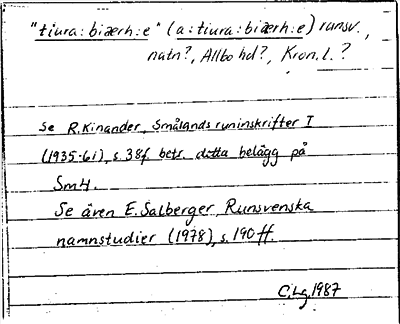 "tiura: biærh:e" (a:tiura:biærh:e) runsv.,
natn?, Allbo hd?, Kron.l.?
Se R. Kinander, Smålands runinskrifter I
(1935-61), s. 38f. betr. detta belägg på
Sm4.
Se även E. Salberger, Runsvenska
namnstudier (1978), s. 190 ff.
C.Lg. 1987